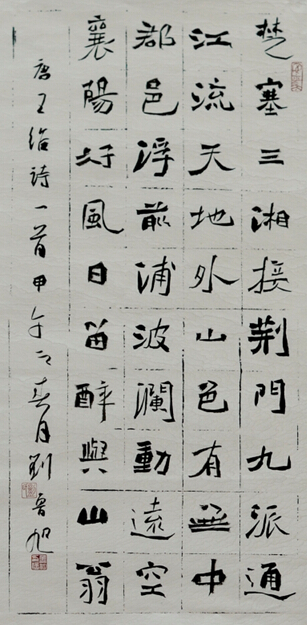 楚塞三湘接荆門九派通
江流天地外山色有無中
郡邑浮前浦波瀾動遠空
襄陽好風日留醉與山翁
唐王維詩一首甲午之春月劉魯旭